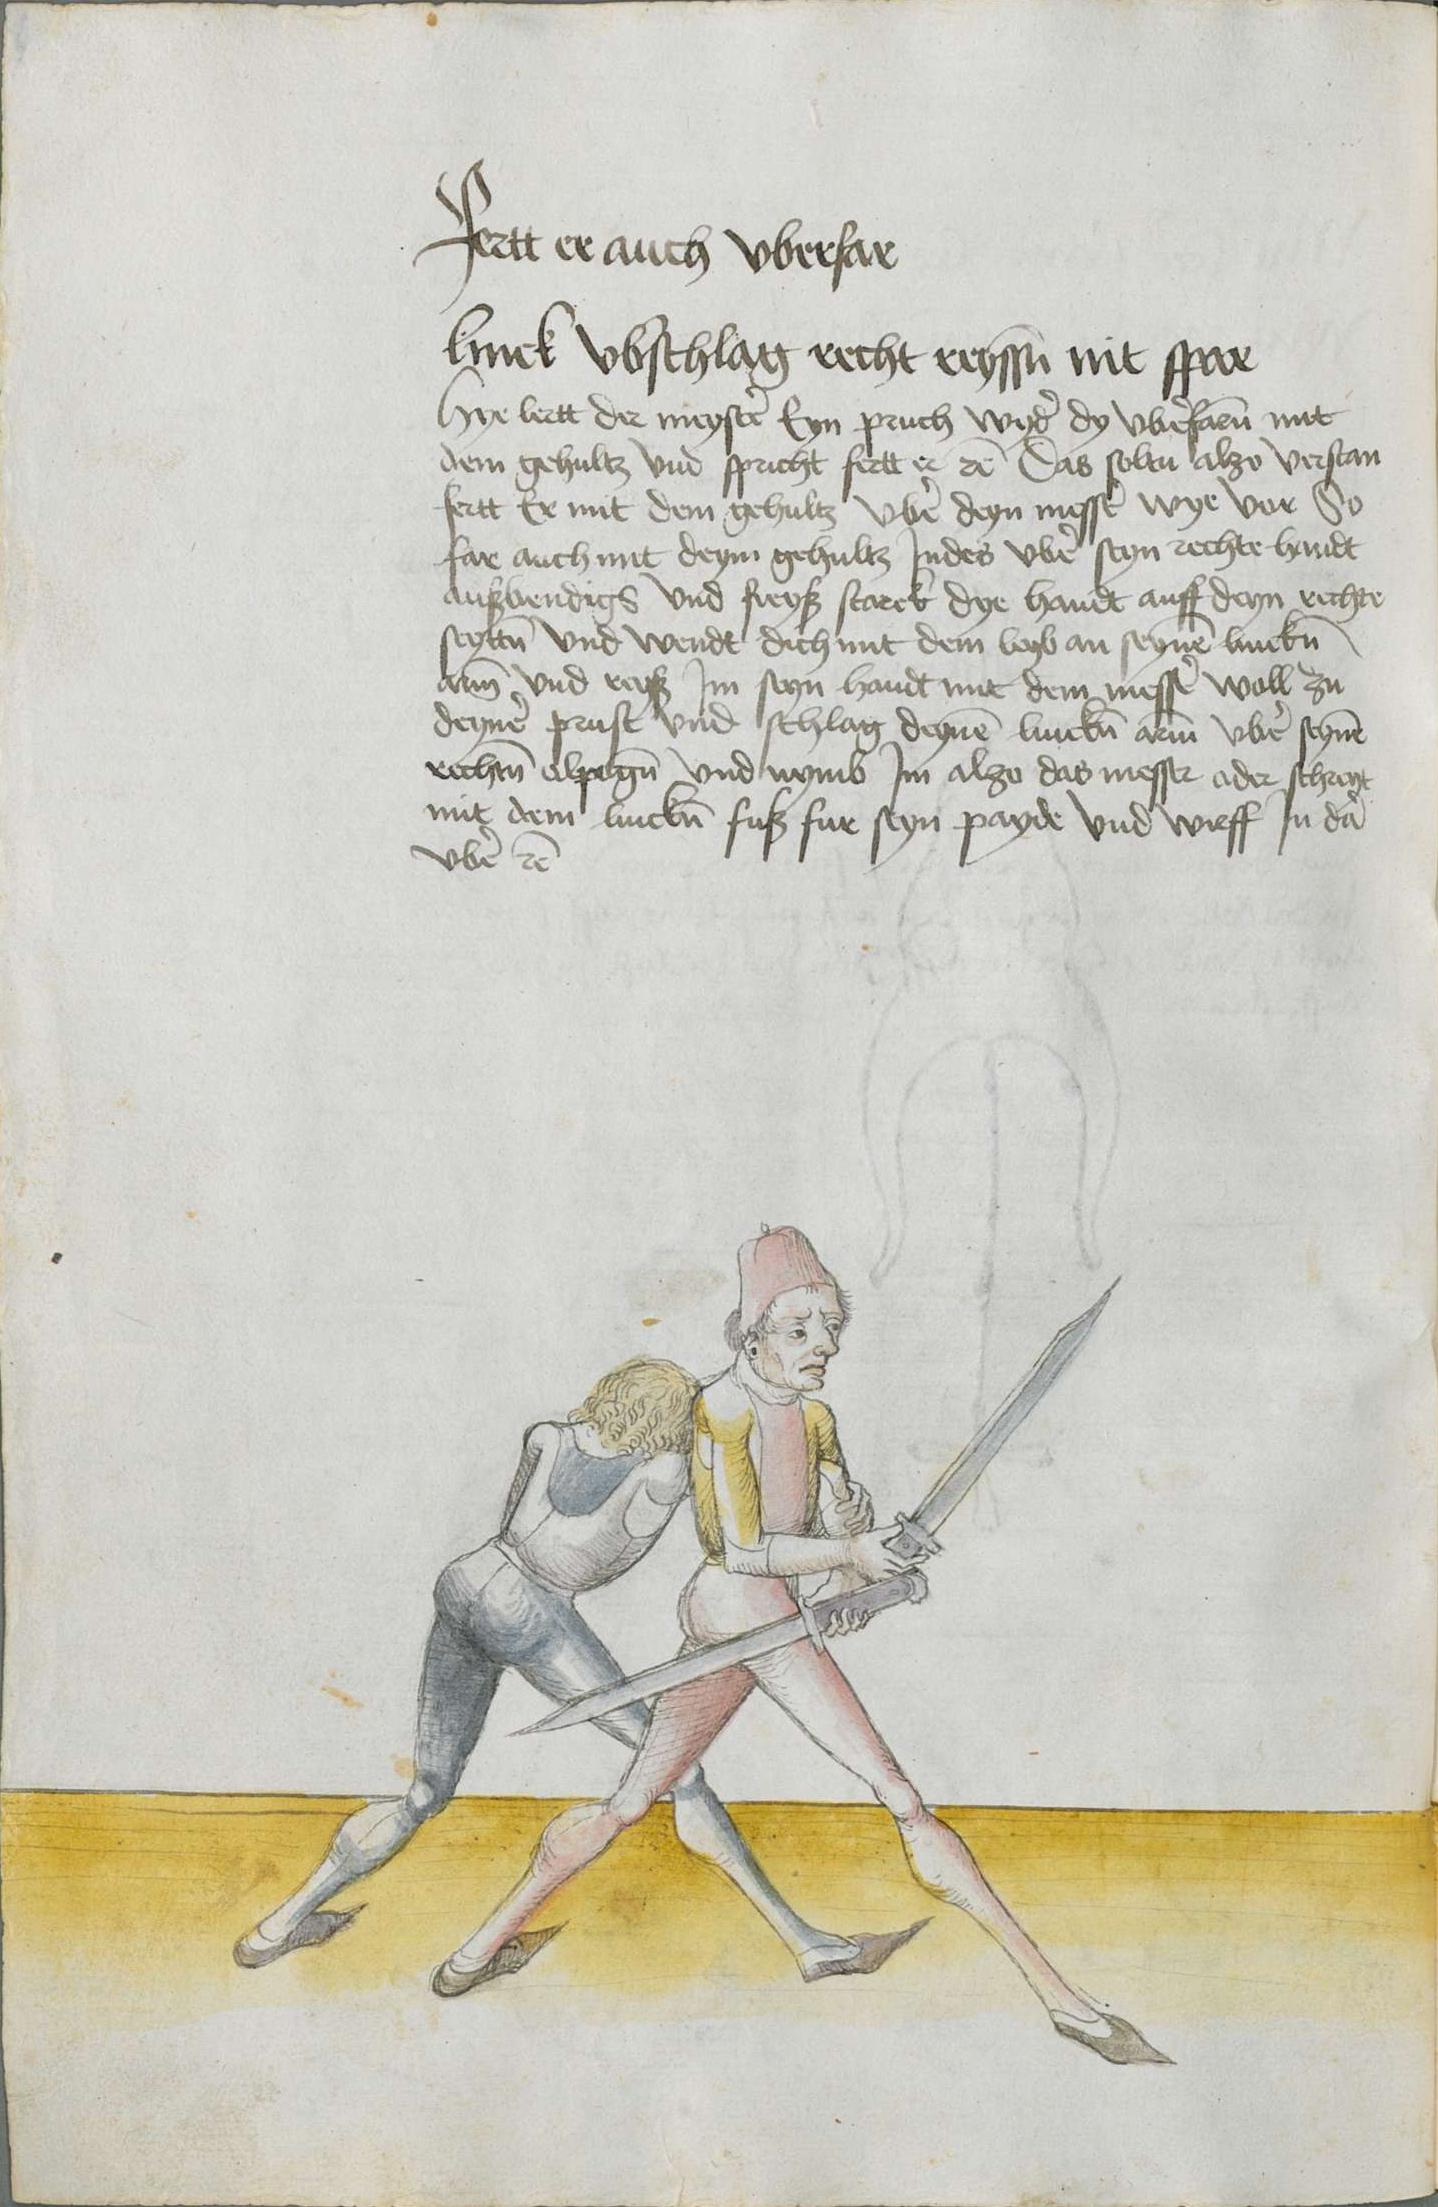 Fertt er auch vberfar
linck vbẽschlag recht reyssñ nit spar
Hye lertt der meystẽ Eyn pruch wydẽ dy vbẽfarñ mit
dem gehultz vnd spricht fertt er zc̃ Das soltu alzo verstan
fertt Er mit dem gehultz vbẽ deyn messẽ wye vor So
far auch mit deym gehultz Indes vbẽ seyn rechte handt
außbendigs vnd freyß starck dye handt auff deyn rechte
seyttñ vnd wendt dich mit dem leyb an seynẽ linckñ
arm̃ vnd reyß Im seyn handt mit dem messẽ woll zu
deynẽ prust vnd schlag deynẽ linckñ arm̃ vbẽ seynẽ
rechtñ elpogñ vnd nymb Im alzo das messer oder schreyt
mit dem linckñ fuß fur seyn payde vnd wirff In dã
vbẽ zc̃